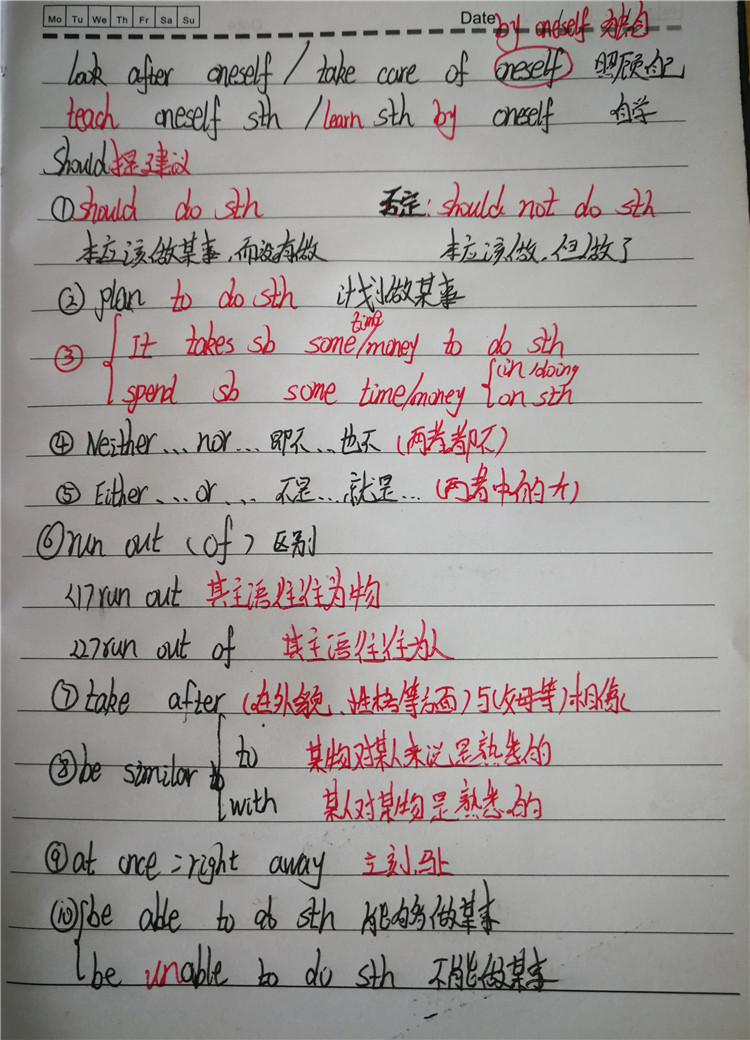 Mo Tu We Th Fr Sa Su Date
by oneself 独自
look after oneself / take care of oneself 照顾自己
teach oneself sth / learn sth by oneself 自学
should 提建议
①should do sth 否定: should not do sth
本应该做某事,而没有做 本应该做,但做了
② plan to do sth 计划做某事
time
③ It takes sb some/money to do sth
spend sb some time/money (in)doing
on sth
④ Neither...nor... 即不...也不 (两者都不)
⑤ Either...or... 不是...就是... (两者中的一个)
⑥run out (of) 区别
<1>run out 其主语往往为物
<2>run out of 其主语往往为人
⑦take after (在外貌、性格等方面)与(父母等)相像
to 某物对某人来说是熟悉的
⑧be similar
with 某人对某物是熟悉的
⑨at once = right away 立刻,马上
⑩be able to do sth 能够做某事
be unable to do sth 不能做某事